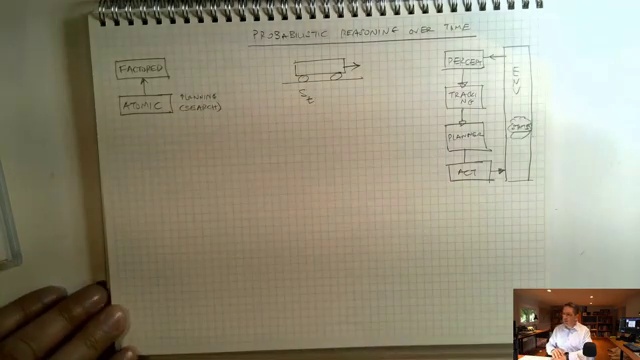 PROBABILISTIC REASONING OVER TIME
FACTORED
ATOMIC
PLANNING
(SEARCH)
St
PERCEP
TRACK
NG
PLANNER
ACT
ENV